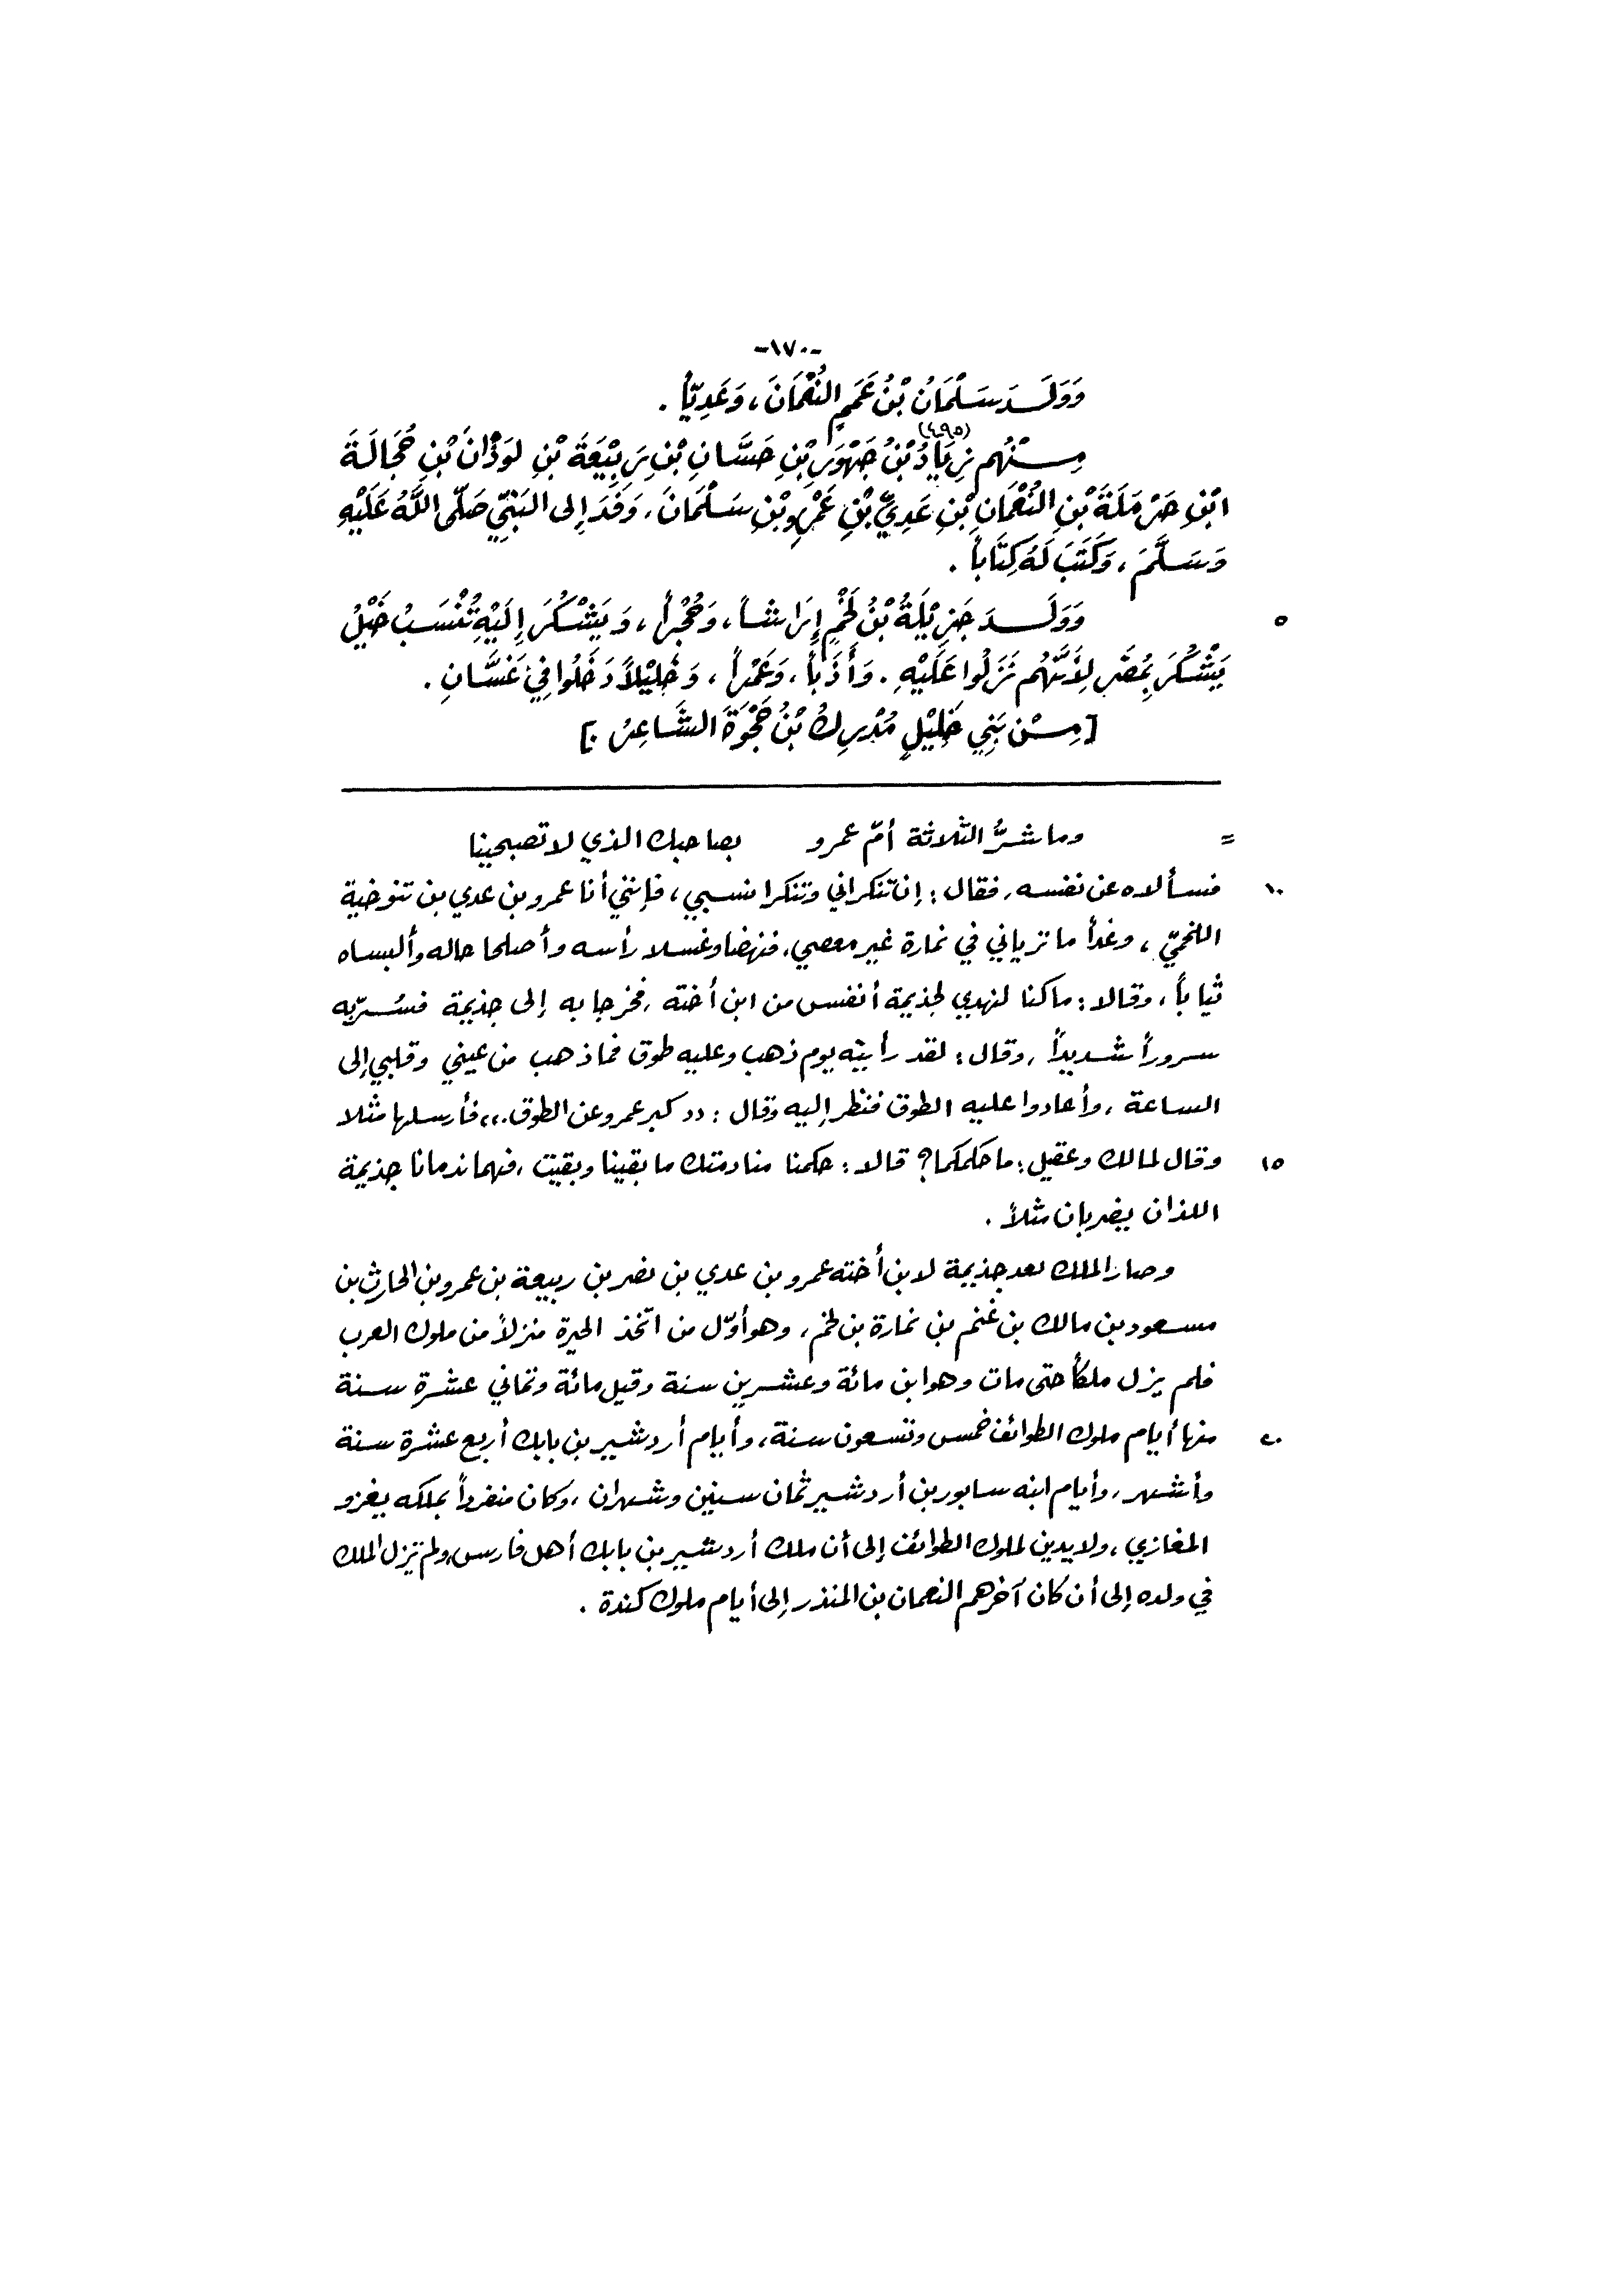 -١٧٠-
وَوَلَدَ سَلْمَانُ بْنُ عَمَمٍ النُّعْمَانَ، وَعَدِيّاً .
مِنْهُم زِيَادُ بْنُ جَهْوَرِ بْنِ حَسَّانِ بْنِ رَبِيْعَةَ بْنِ لَوْذَانَ بْنِ حُجَالَةَ (٤٩٥)
ابْنِ حَرْمَلَةَ بْنِ النُّعْمَانِ بْنِ عَدِيِّ بْنِ عَمْرِو بْنِ سَلْمَانَ، وَفَدَ إِلى النَّبِيِّ صَلَّى اللَّهُ عَلَيْهِ
وَسَلَّمَ، وَكَتَبَ لَهُ كِتَاباً .
وَوَلَدَ جَزِيْلَةُ بْنُ لَخْمٍ إِرَاشاً، وَحُجْراً، وَيَشْكُرَ إِلَيْهِ تُنْسَبُ خَيْلُ ٥
يَشْكُرَ بِمُضَرِ لِأَنَّهُم نَزَلُوا عَلَيْهِ . وَأَذَباً، وَعَمْراً، وَخَلِيْلاً دَخَلُوا فِيْ غَسَّانِ .
[مِنْ بَنِي خَلِيْلٍ مُدْرِكُ بْنُ حَجْوَةَ الشَّاعِرُ .]
= وما شرُّ الثلاثة أمّ عمرو بصاحبك الذي لا تصبحينا
١٠ فسألاه عن نفسه، فقال: إن تنكراني وتنكرا نسبي، فإنني أنا عمرو بن عدي بن تنوخية
اللخميّ، وغداً ما ترياني في نمارة غير معصي. فنهضا وغسلا رأسه وأصلحا حاله وألبساه
ثياباً، وقالا: ما كنا لنهدي لجذيمة أنفس من ابن أخته، فخرجا به إلى جذيمة فسُرّ به
سروراً شديداً، وقال: لقد رأيته يوم ذهب وعليه طوق فما ذهب من عيني وقلبي إلى
الساعة، وأعادوا عليه الطوق فنظر إليه وقال: «كبر عمرو عن الطوق.» فأرسلها مثلا
١٥ وقال لمالك وعقيل: ما حكمكما؟ قالا: حكمنا منادمتك ما بقينا وبقيت، فهما ندمانا جذيمة
اللذان يضربان مثلاً .
وصار الملك بعد جذيمة لابن أخته عمرو بن عدي بن نصر بن ربيعة بن عمرو بن الحارث بن
مسعود بن مالك بن غنم بن نمارة بن لخم، وهو أوّل من اتّخذ الحيرة منزلاً من ملوك العرب
فلم يزل ملكاً حتى مات وهو ابن مائة وعشرين سنة وقيل مائة وثماني عشرة سنة
٢٠ منها أيام ملوك الطوائف خمس وتسعون سنة، وأيام أردشير بن بابك أربع عشرة سنة
وأشهر، وأيام ابنه سابور بن أردشير ثمان سنين وشهران، وكان منفرداً بملكه يغزو
المغازي، ولا يدين لملوك الطوائف إلى أن ملك أردشير بن بابك أهل فارس، ولم تزل الملك
في ولده إلى أن كان آخرهم النعمان بن المنذر إلى أيام ملوك كندة .